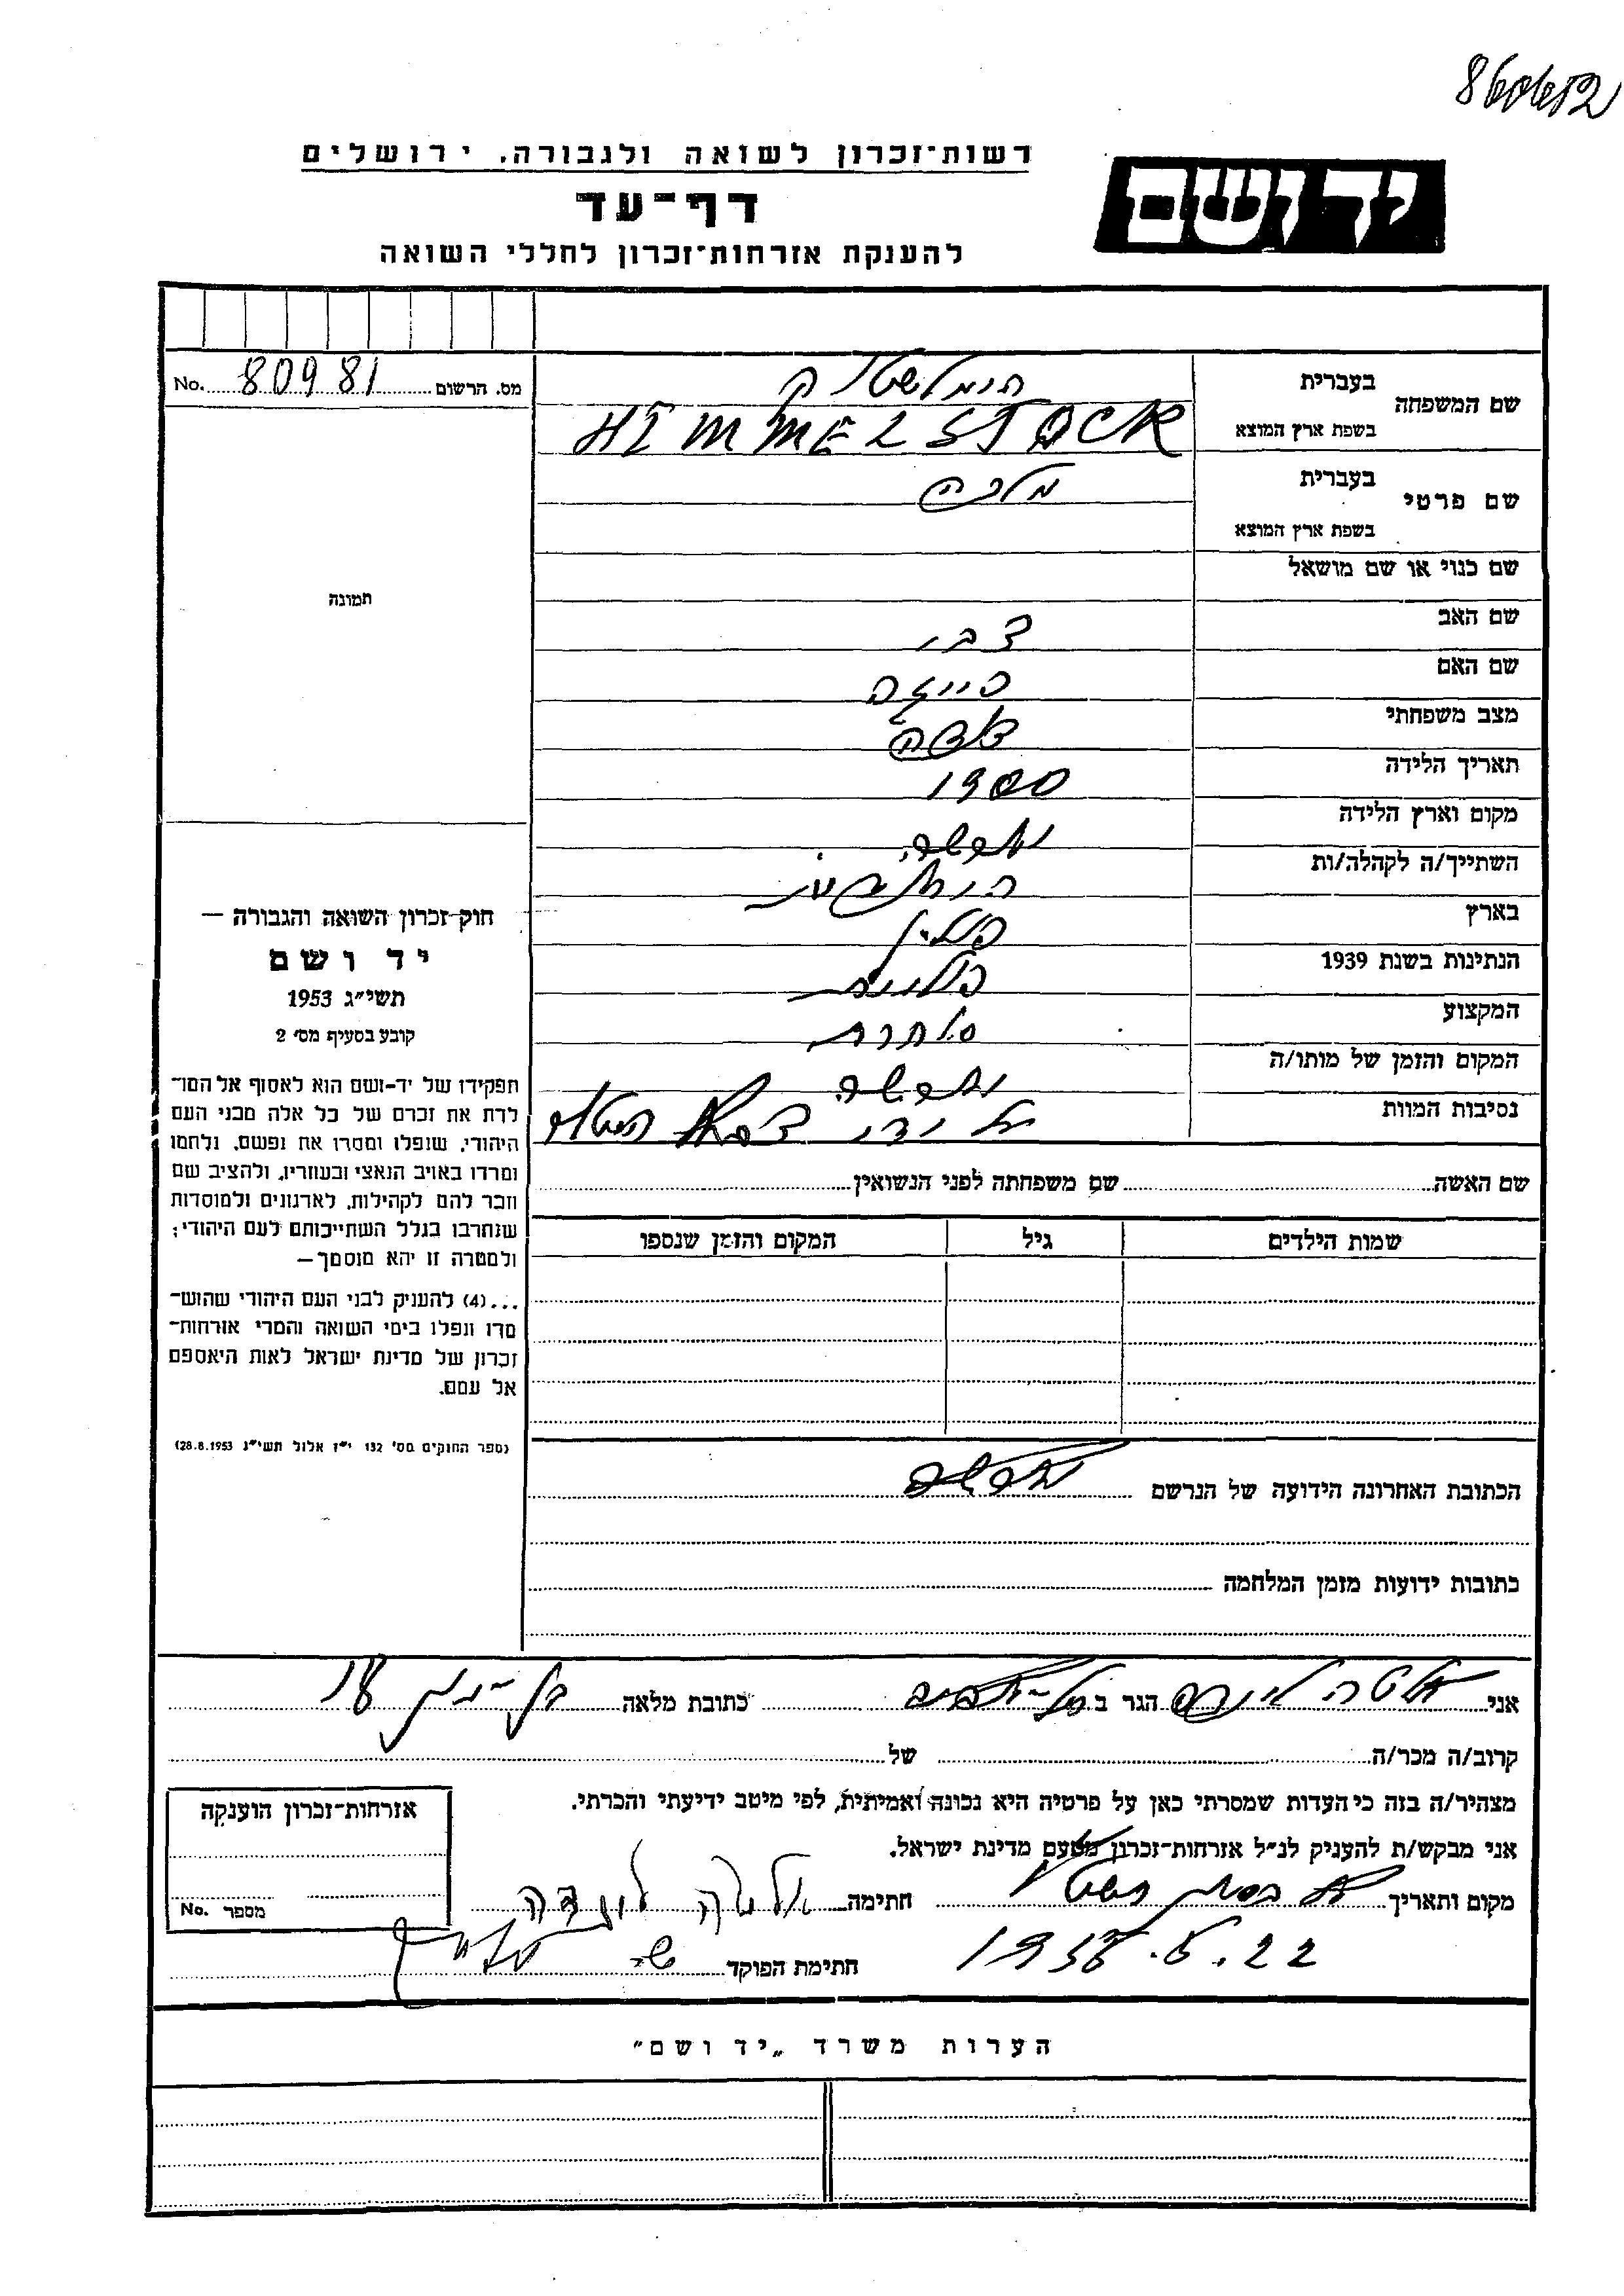 רשות־זכרון לשואה ולגבורה. ירושלים
יד ושם
דף־עד
להענקת אזרחות־זכרון לחללי השואה
מס. הרשום 80981 No.
שם המשפחה
בעברית הימלשטוק
בשפת ארץ המוצא HIMMELSTOCK
שם פרטי
בעברית מלכה
בשפת ארץ המוצא
שם כנוי או שם מושאל
שם האב צבי
שם האם פייגה
מצב משפחתי
תאריך הלידה 1900
מקום וארץ הלידה ורשה
השתייך/ה לקהלה/ות
בארץ פולין
הנתינות בשנת 1939 פולנית
המקצוע סוחרת
המקום והזמן של מותו/ה ורשה
נסיבות המוות על ידי
תמונה
חוק-זכרון השואה והגבורה —
יד ושם
תשי״ג 1953
קובע בסעיף מס׳ 2
תפקידו של יד-ושם הוא לאסוף אל המו־
לדת את זכרם של כל אלה מבני העם
היהודי, שנפלו ומסרו את נפשם, נלחמו
ומרדו באויב הנאצי ובעוזריו, ולהציב שם
וזכר להם לקהילות, לארגונים ולמוסדות
שנחרבו בגלל השתייכותם לעם היהודי;
ולמטרה זו יהא מוסמך—
...(4) להעניק לבני העם היהודי שהוש־
מדו ונפלו בימי השואה והמרי אזרחות־
זכרון של מדינת ישראל לאות היאספם
אל עמם.
(ספר החוקים מס׳ 132 י״ז אלול תשי״ג 28.8.1953)
שם האשה שם משפחתה לפני הנשואין
שמות הילדים גיל המקום והזמן שנספו
הכתובת האחרונה הידועה של הנרשם ורשה
כתובות ידועות מזמן המלחמה
אני הגר ב תל-אביב כתובת מלאה
קרוב/ה מכר/ה של
מצהיר/ה בזה כי העדות שמסרתי כאן על פרטיה היא נכונה ואמיתית, לפי מיטב ידיעתי והכרתי.
אני מבקש/ת להעניק לנ״ל אזרחות־זכרון מטעם מדינת ישראל.
מקום ותאריך חתימה
חתימת הפוקד
אזרחות־זכרון הוענקה
מספר No.
הערות משרד „יד ושם״